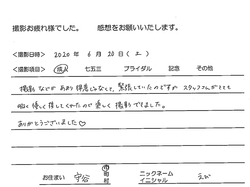 撮影お疲れ様でした。 感想をお願いいたします。
<撮影日時> 2020年 6月 20日(土)
<撮影項目> 成人 七五三 ブライダル 記念 その他
撮影などがあまり得意じゃなくて、緊張していたのですがスタッフさんがとても
明るく優しく接してくれたので楽しく撮影できました。
ありがとうございました♡
お住まい 守谷 市町村 ニックネームイニシャル えび